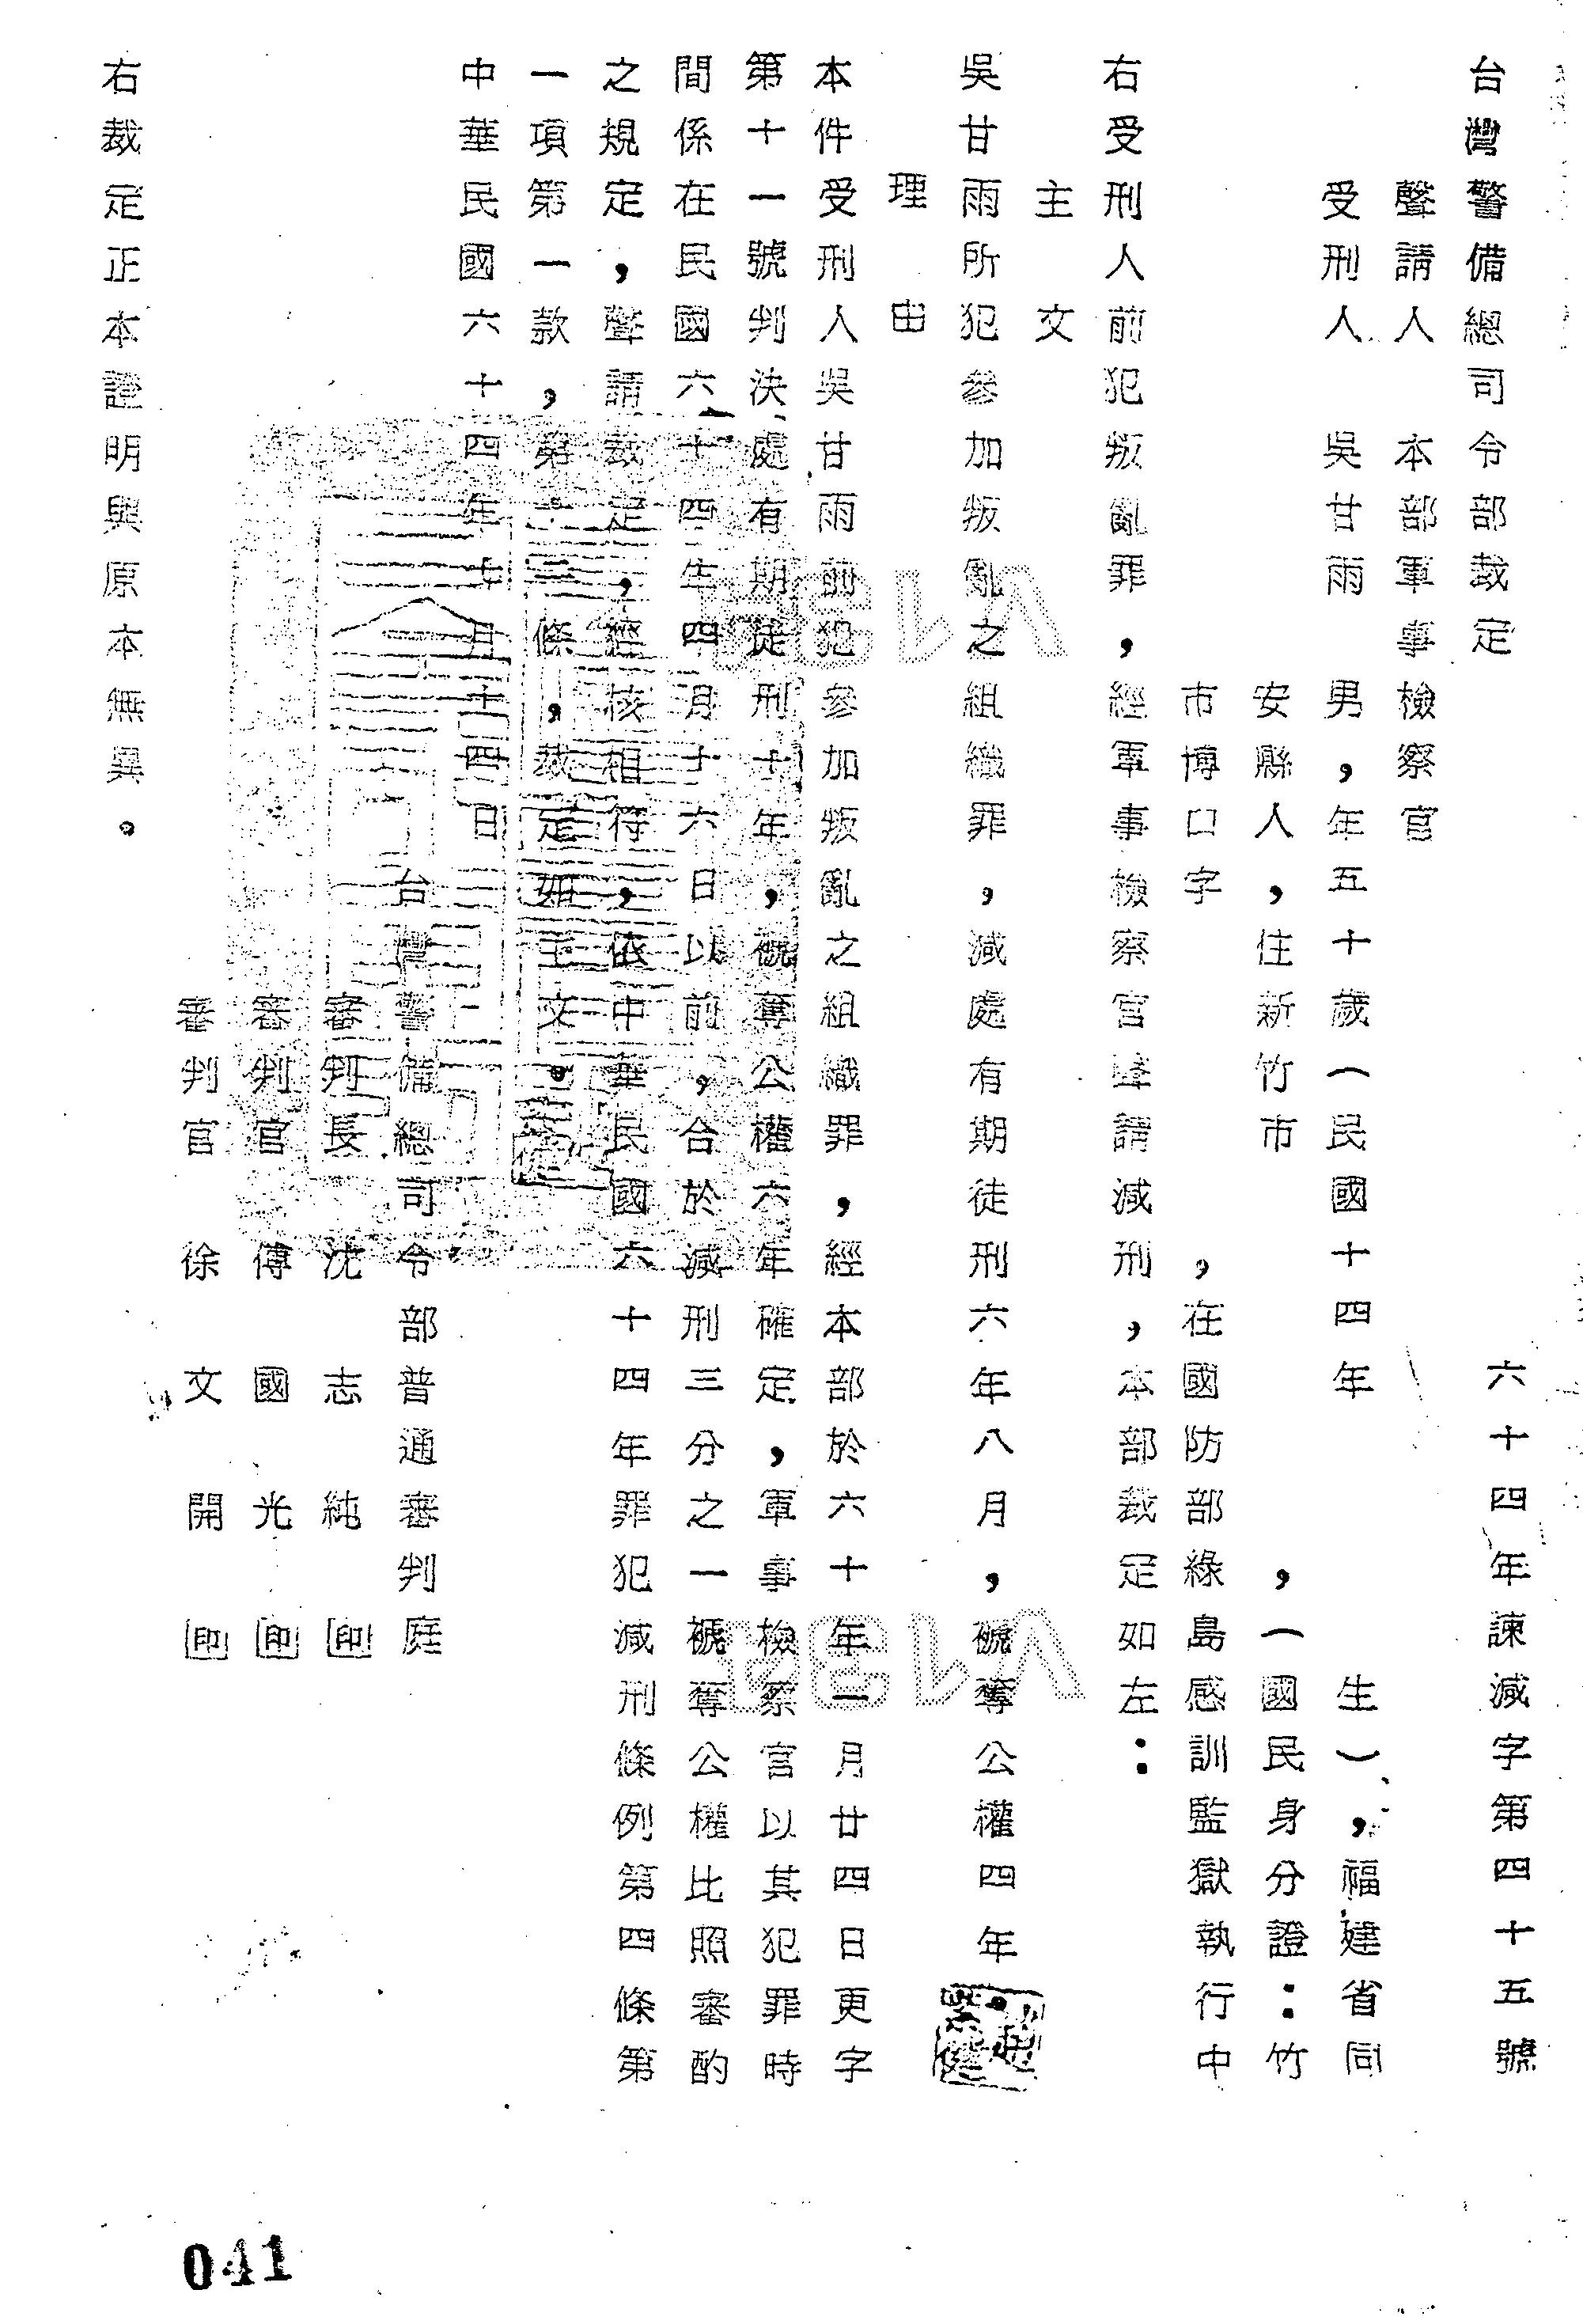 台灣警備總司令部裁定　六十四年諫減字第四十五號
聲請人　本部軍事檢察官
受刑人　吳甘雨　男，年五十歲（民國十四年　生），福建省同
安縣人，住新竹市　，（國民身分證：竹
市博口字　，在國防部綠島感訓監獄執行中
右受刑人前犯叛亂罪，經軍事檢察官聲請減刑，本部裁定如左：
主文
吳甘雨所犯參加叛亂之組織罪，減處有期徒刑六年八月，褫奪公權四年。
理由
本件受刑人吳甘雨前犯參加叛亂之組織罪，經本部於六十年一月廿四日更字
第十一號判決處有期徒刑十年，褫奪公權六年確定，軍事檢察官以其犯罪時
間係在民國六十四年四月十六日以前，合於減刑三分之一褫奪公權比照審酌
之規定，聲請裁定，經核相符，依中華民國六十四年罪犯減刑條例第四條第
一項第一款，第十三條，裁定如主文。
中華民國六十四年七月十四日
台灣警備總司令部普通審判庭
審判長　沈志純　印
審判官　傅國光　印
審判官　徐文開　印
右裁定正本證明與原本無異。
041